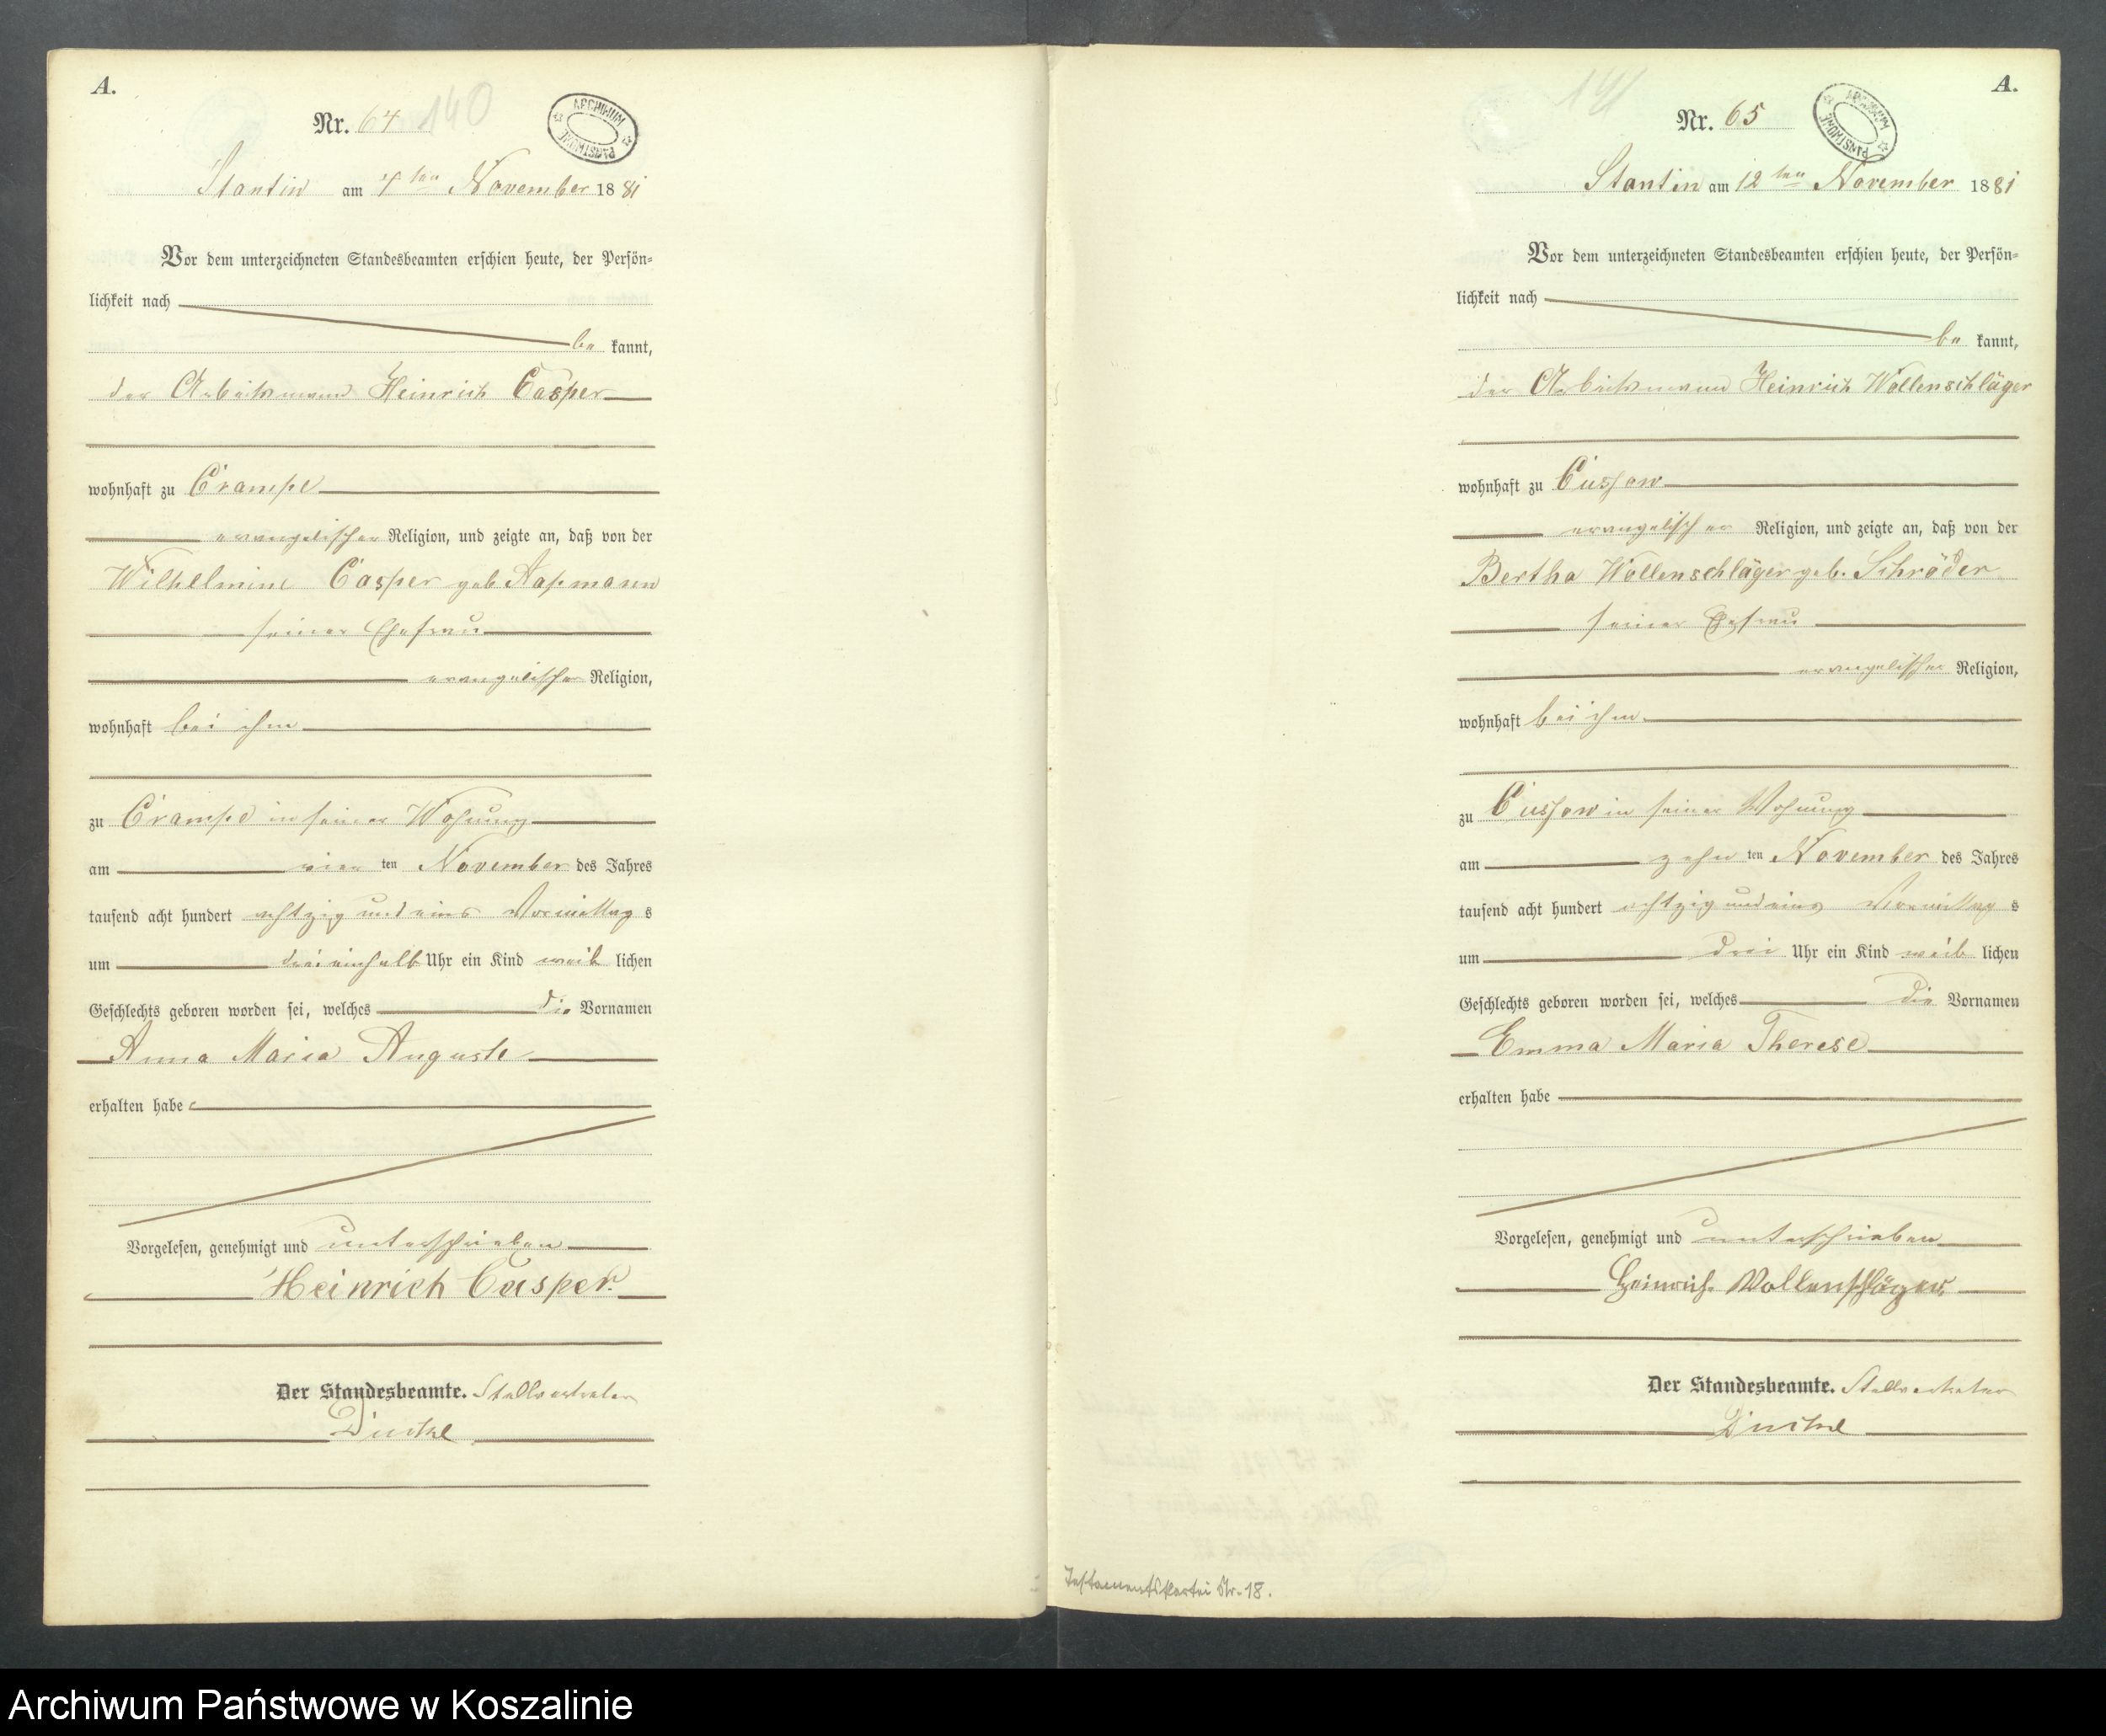 A.
Nr. 64
140
ARCHIWUM PAŃSTWOWE
Stantin am 4ten November 1881
Vor dem unterzeichneten Standesbeamten erschien heute, der Persön-
lichkeit nach
be kannt,
der Arbeitsmann Heinrich Casper
wohnhaft zu Crampe
evangelischer Religion, und zeigte an, daß von der
Wilhelmine Casper geb. Aßmann
seiner Ehefrau
evangelischer Religion,
wohnhaft bei ihm
zu Crampe in seiner Wohnung
am vier ten November des Jahres
tausend acht hundert achtzig und eins Vormittag s
um drei einhalb Uhr ein Kind weib lichen
Geschlechts geboren worden sei, welches die Vornamen
Anna Maria Auguste
erhalten habe
Vorgelesen, genehmigt und unterschrieben
Heinrich Casper.
Der Standesbeamte. Stellvertreter
A.
Nr. 65
141
ARCHIWUM PAŃSTWOWE
Stantin am 12ten November 1881
Vor dem unterzeichneten Standesbeamten erschien heute, der Persön-
lichkeit nach
be kannt,
der Arbeitsmann Heinrich Wollenschläger
wohnhaft zu Cussow
evangelischer Religion, und zeigte an, daß von der
Bertha Wollenschläger geb. Schröder
seiner Ehefrau
evangelischer Religion,
wohnhaft bei ihm
zu Cussow in seiner Wohnung
am zehn ten November des Jahres
tausend acht hundert achtzig und eins Vormittag s
um drei Uhr ein Kind weib lichen
Geschlechts geboren worden sei, welches die Vornamen
Emma Maria Therese
erhalten habe
Vorgelesen, genehmigt und unterschrieben
Heinrich Wollenschläger
Der Standesbeamte. Stellvertreter
Testamentskartei Nr. 18.
Archiwum Państwowe w Koszalinie